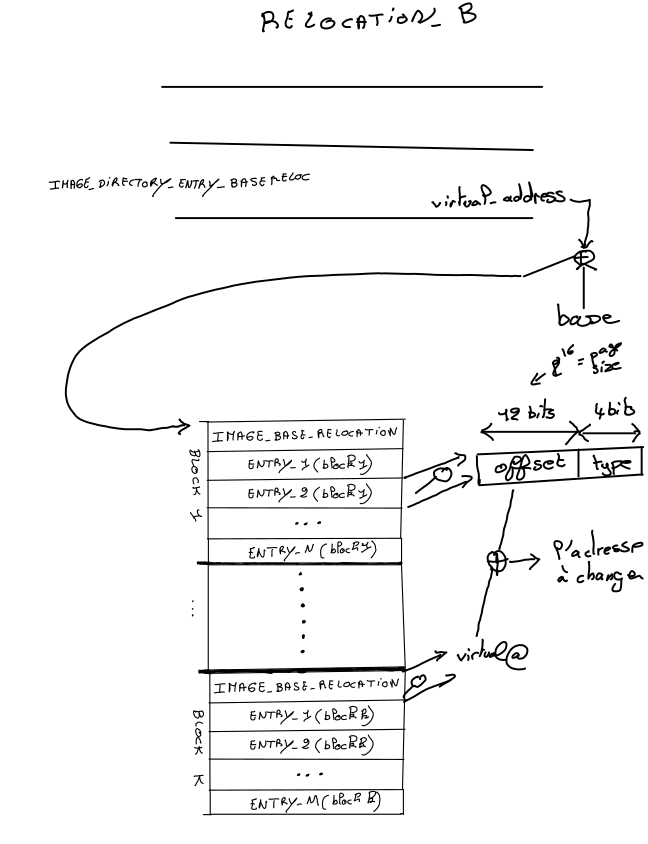 RELOCATION_B
IMAGE_DIRECTORY_ENTRY_BASERELOC
virtual_address
+
base
2^16 = page
size
12 bits
4 bits
offset
type
IMAGE_BASE_RELOCATION
ENTRY_1 (block 1)
ENTRY_2 (block 1)
...
ENTRY_N (block 1)
BLOCK 1
+
l'adresse
à changer
...
virtual @
IMAGE_BASE_RELOCATION
ENTRY_1 (block k)
ENTRY_2 (block k)
...
ENTRY_M (block k)
BLOCK K